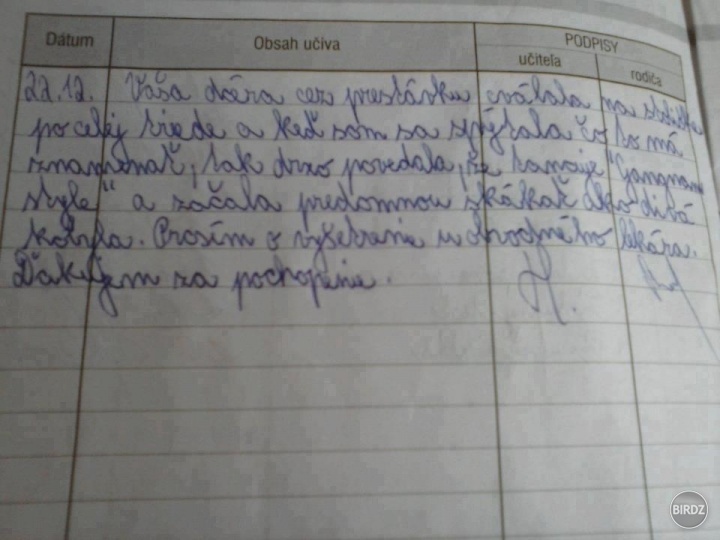 Dátum
Obsah učiva
PODPISY
učiteľa
rodiča
22.12. Vaša dcéra cez prestávku cválala na stoličke
po celej triede a keď som sa spýtala čo to má
znamenať, tak drzo povedala, že tancuje "Gangnam
style" a začala predomnou skákať ako divá
kobyla. Prosím o vyšetrenie u vhodného lekára.
Ďakujem za pochopenie.
BIRDZ